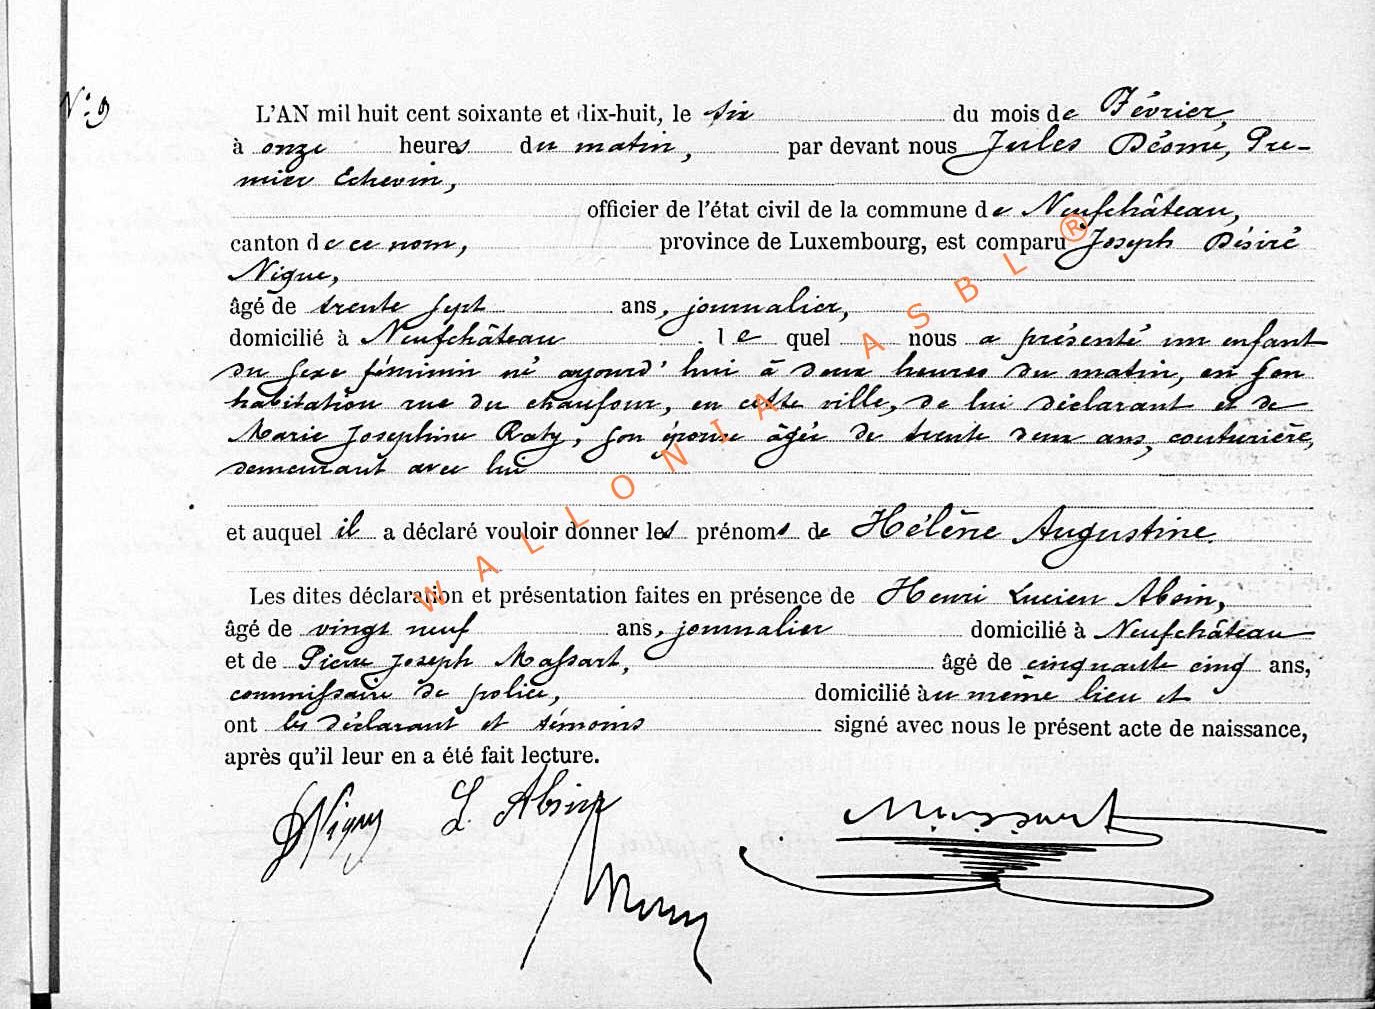 N° 9
L'AN mil huit cent soixante et dix-huit, le six du mois de Février,
à onze heures du matin, par devant nous Jules Désomé, Pre-
mier Echevin,
officier de l'état civil de la commune de Neufchâteau,
canton de ce nom, province de Luxembourg, est comparu Joseph Désiré
Nigue,
âgé de trente sept ans, journalier,
domicilié à Neufchâteau le quel nous a présenté un enfant
du sexe féminin né aujourd'hui à deux heures du matin, en son
habitation rue du chaufour, en cette ville, de lui déclarant et de
Marie Josephine Raty, son épouse âgée de trente deux ans, couturière,
demeurant avec lui
et auquel il a déclaré vouloir donner les prénoms de Hélène Augustine.
Les dites déclaration et présentation faites en présence de Henri Lucien Absin,
âgé de vingt neuf ans, journalier domicilié à Neufchâteau
et de Pierre Joseph Massart, âgé de cinquante cinq ans,
commissaire de police, domicilié au même lieu et
ont les déclarant et témoins signé avec nous le présent acte de naissance,
après qu'il leur en a été fait lecture.
L. Absin Massart
WALLONIA ASBL ®